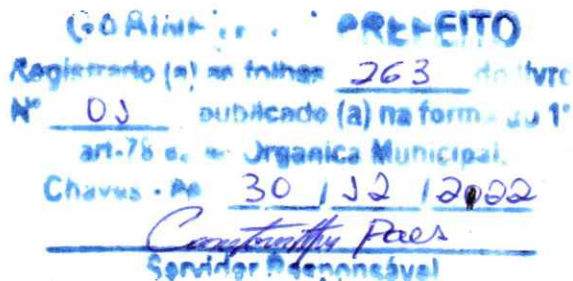 GABINETE PREFEITO
Registrado (a) as folhas 263 do livro
Nº 01 publicado (a) na forma do 1°
art-78 Organica Municipal.
Chaves - Pa 30 / 12 / 2022
Paes
Servidor Responsável